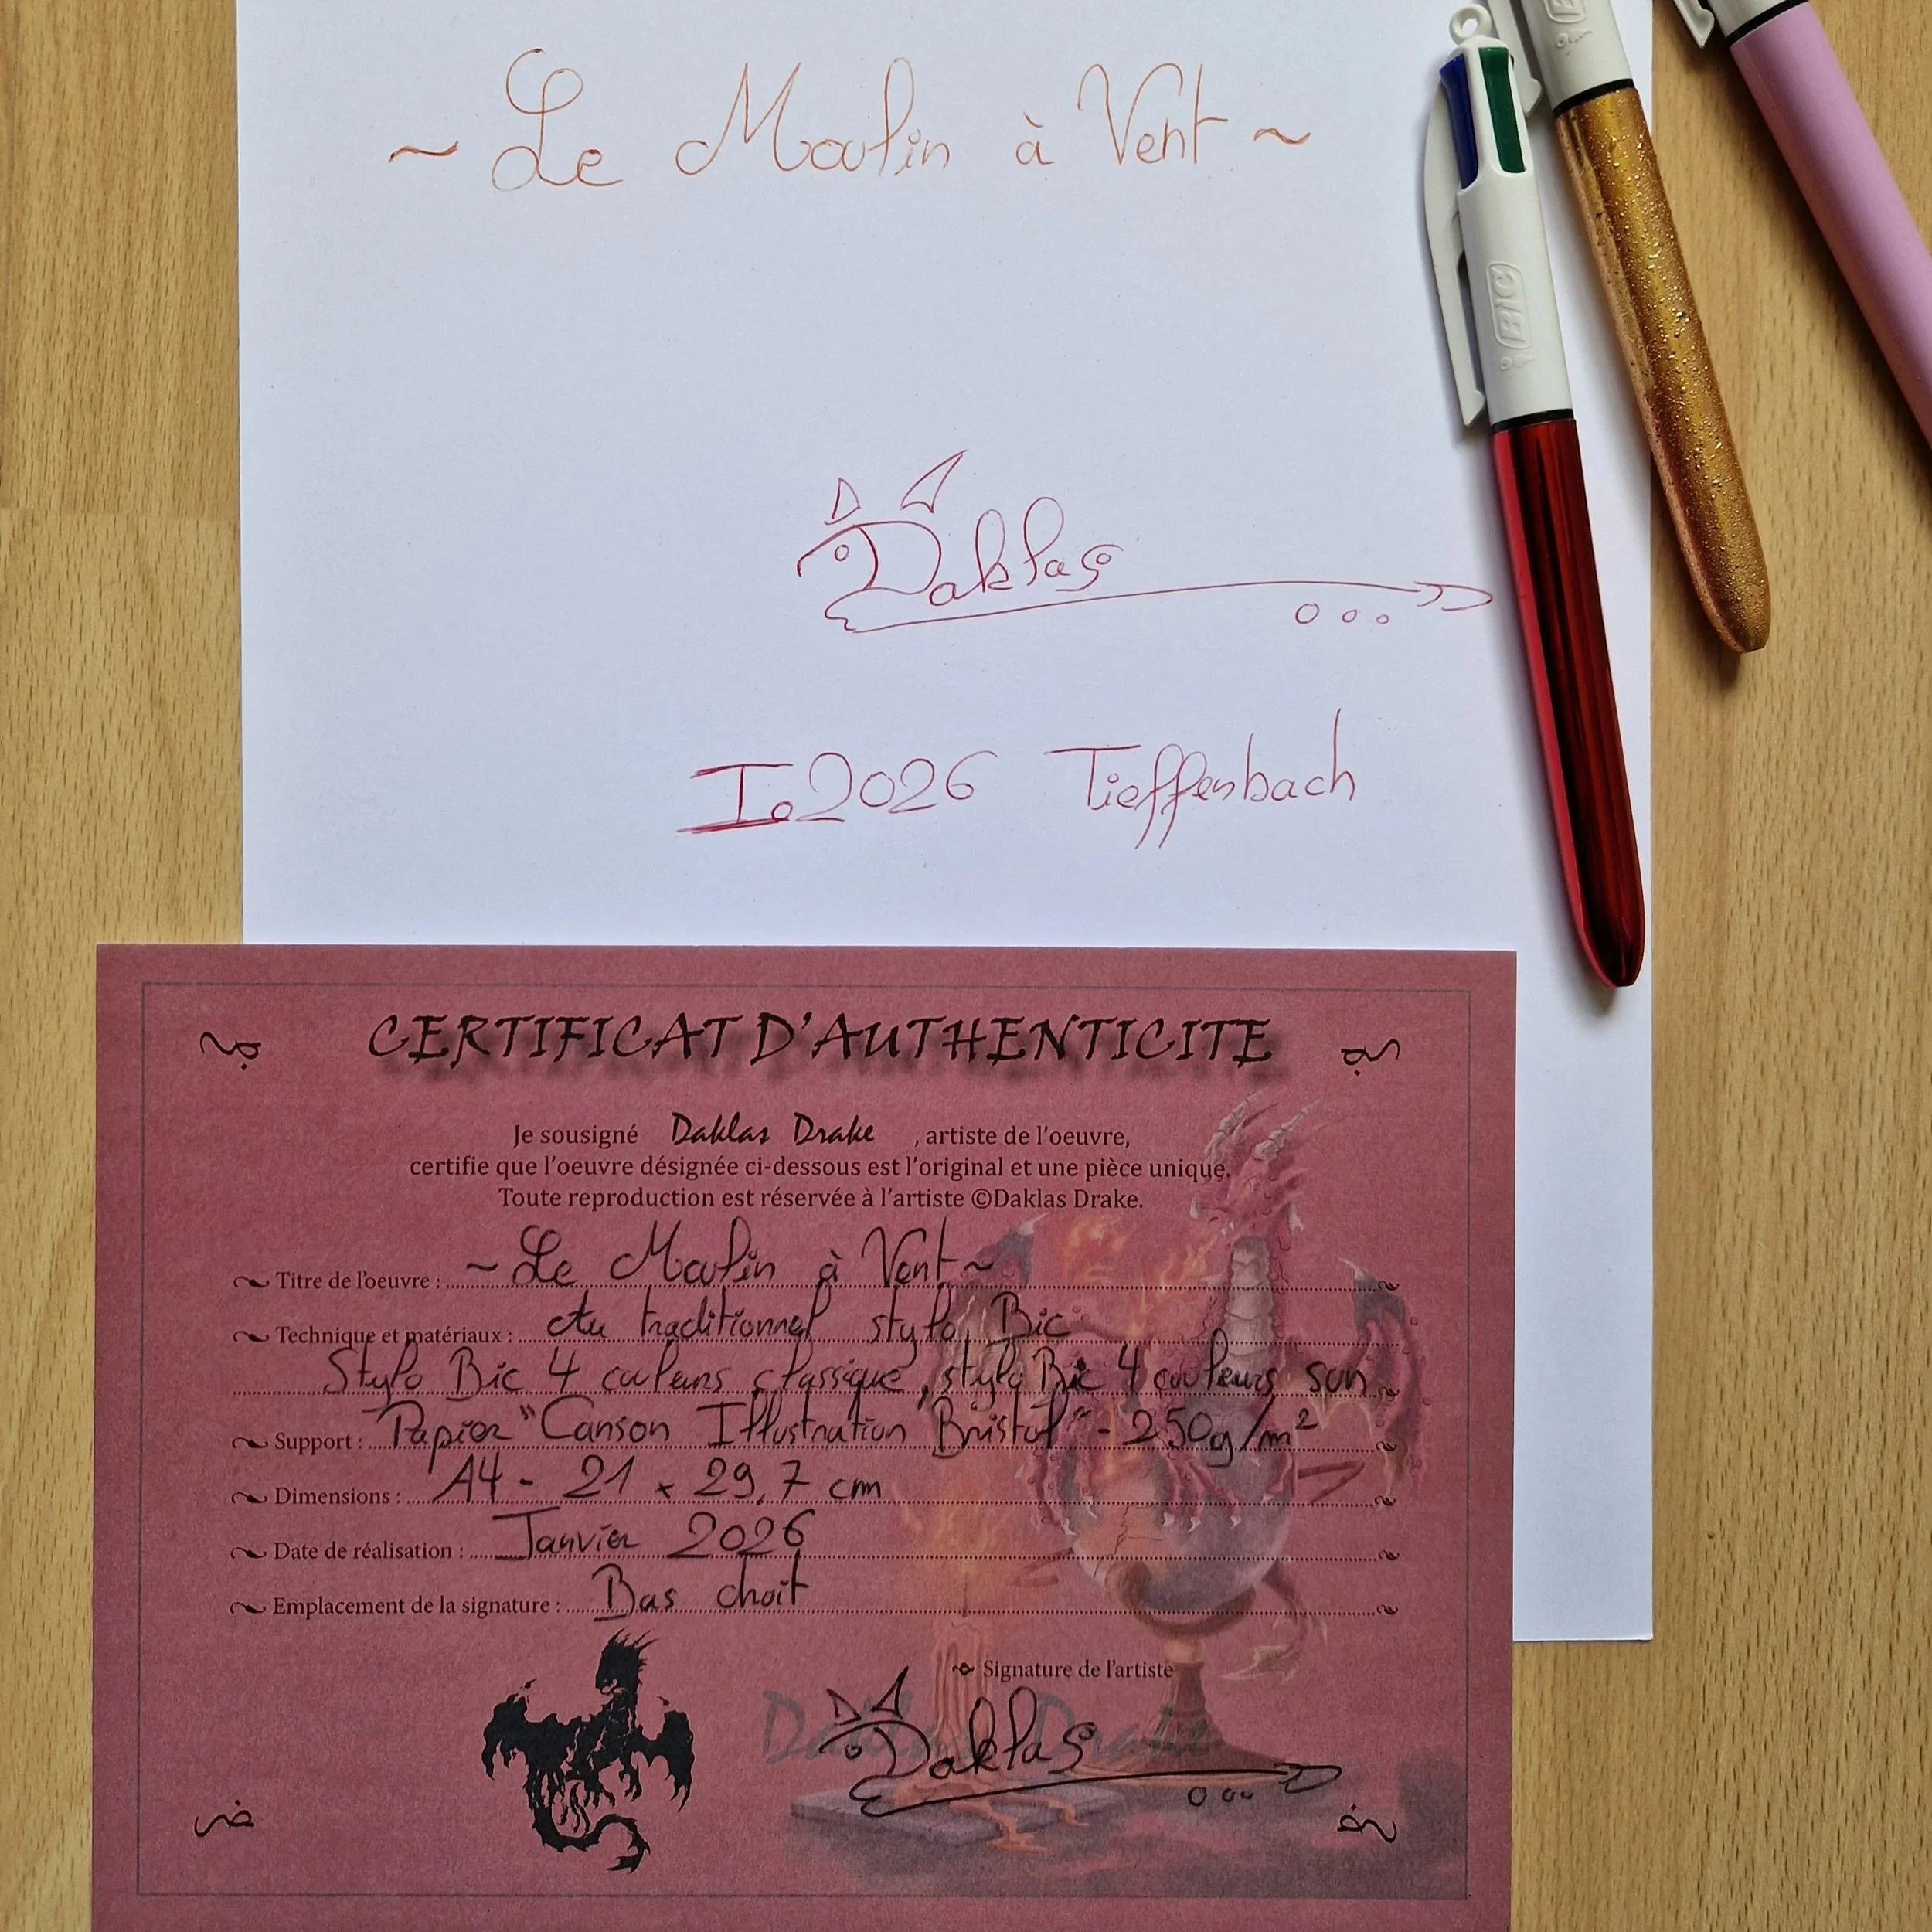 ~ Le Moulin à Vent ~
Daklas
I.2026 Tieffenbach
BIC
CERTIFICAT D'AUTHENTICITE
Je sousigné Daklas Drake , artiste de l'oeuvre,
certifie que l'oeuvre désignée ci-dessous est l'original et une pièce unique.
Toute reproduction est réservée à l'artiste ©Daklas Drake.
Titre de l'oeuvre : ~ Le Moulin à Vent ~
Technique et matériaux : Au traditionnel stylo Bic
Stylo Bic 4 couleurs classique, stylo Bic 4 couleurs sun
Support : Papier "Canson Illustration Bristol" - 250g/m²
Dimensions : A4 - 21 x 29,7 cm
Date de réalisation : Janvier 2026
Emplacement de la signature : Bas droit
Signature de l'artiste
Daklas Drake
Daklas